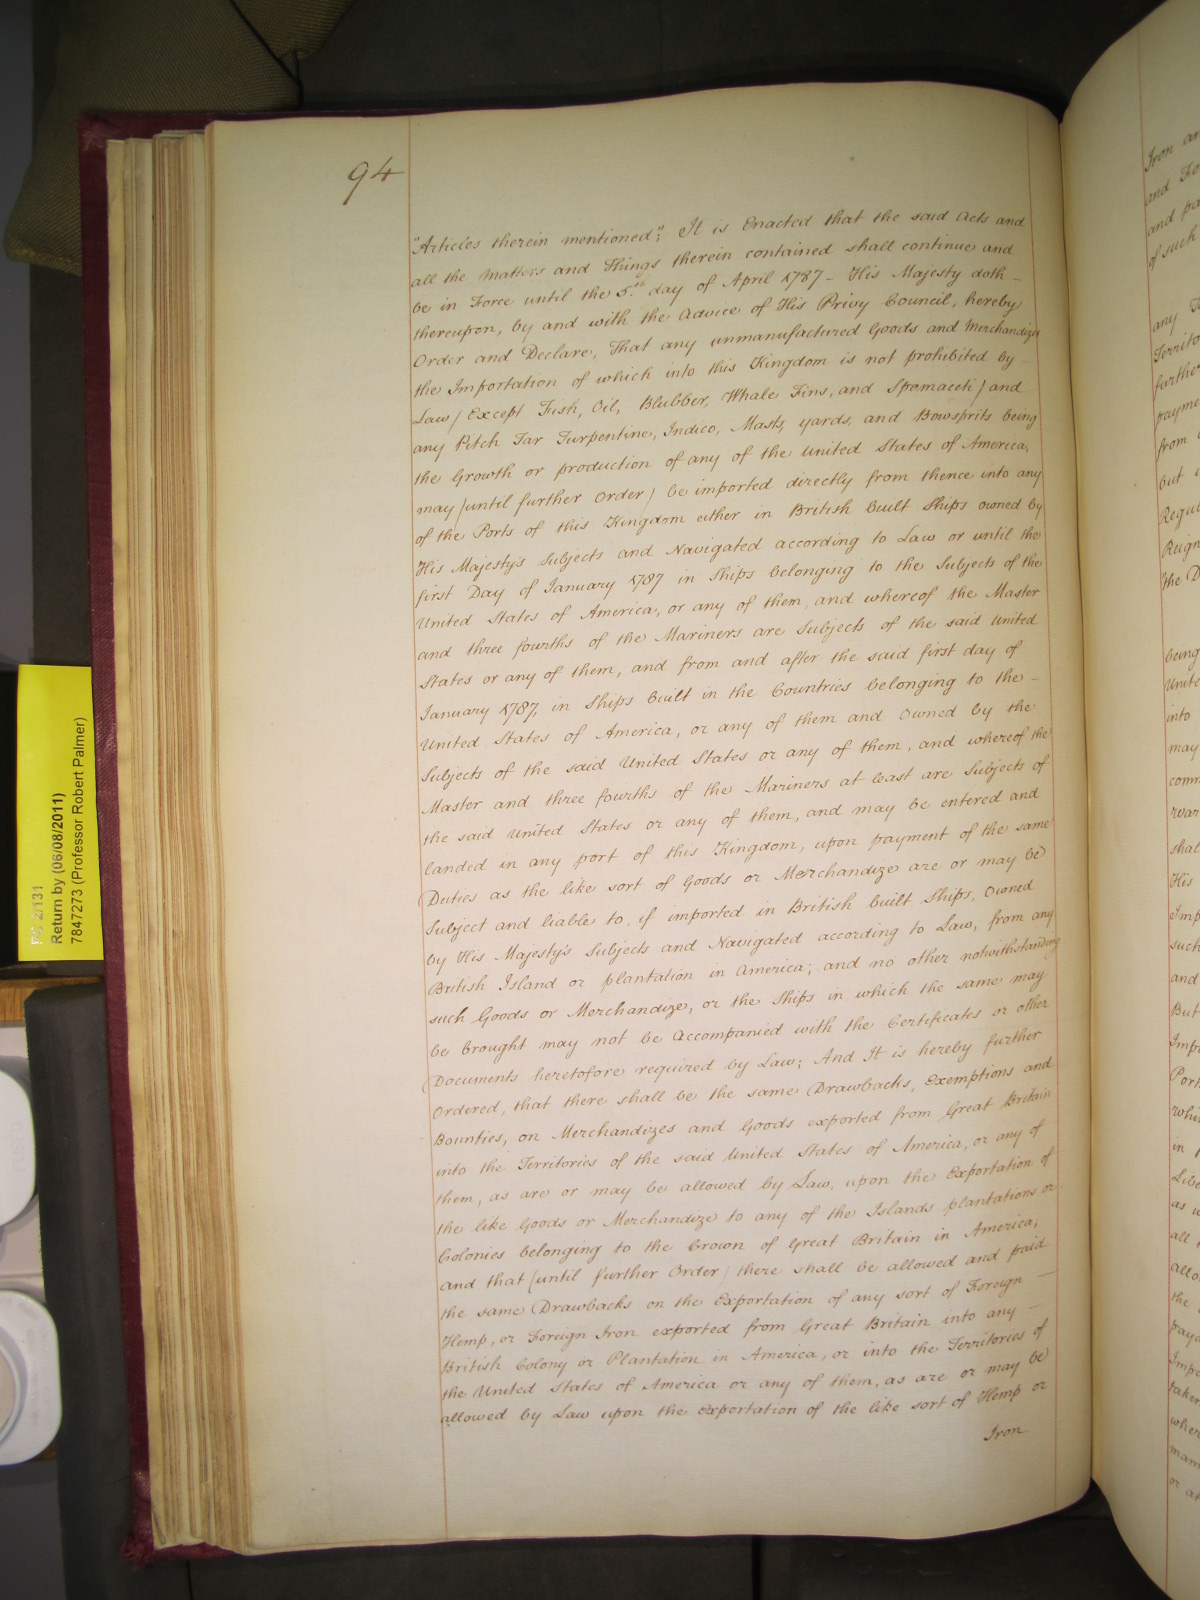 94
"Articles therein mentioned"; It is Enacted that the said Acts and
all the Matters and Things therein contained shall continue and
be in Force until the 5.th day of April 1787 – His Majesty doth –
thereupon, by and with the Advice of His Privy Council, hereby
Order and Declare, That any unmanufactured Goods and Merchandizes
the Importation of which into this Kingdom is not prohibited by –
Law (Except Fish, Oil, Blubber, Whale Fins, and Spermaceti) and
any Pitch Tar Turpentine, Indico, Masts, yards, and Bowsprits being
the Growth or production of any of the United States of America,
may (until further Order) be imported directly from thence into any
of the Ports of this Kingdom either in British built Ships owned by
His Majesty's Subjects and Navigated according to Law or until the
first Day of January 1787 in Ships belonging to the Subjects of the
United States of America, or any of them, and whereof the Master
and three fourths of the Mariners are Subjects of the said United
States or any of them, and from and after the said first day of
January 1787, in Ships built in the Countries belonging to the –
United States of America, or any of them and Owned by the
Subjects of the said United States or any of them, and whereof the
Master and three fourths of the Mariners at least are Subjects of
the said United States or any of them, and may be entered and
landed in any port of this Kingdom, upon payment of the same
Duties as the like sort of Goods or Merchandize are or may be
Subject and liable to, if imported in British built Ships, Owned
by His Majesty's Subjects and Navigated according to Law, from any
British Island or plantation in America; and no other notwithstanding
such Goods or Merchandize, or the Ships in which the same may
be brought may not be Accompanied with the Certificates or other
Documents heretofore required by Law; And It is hereby further
Ordered, that there shall be the same Drawbacks, Exemptions and
Bounties, on Merchandizes and Goods exported from Great Britain
into the Territories of the said United States of America, or any of
them, as are or may be allowed by Law, upon the Exportation of
the like Goods or Merchandize to any of the Islands plantations or
Colonies belonging to the Crown of Great Britain in America;
and that (until further Order) there shall be allowed and paid
the same Drawbacks on the Exportation of any sort of Foreign –
Hemp, or Foreign Iron exported from Great Britain into any –
British Colony or Plantation in America, or into the Territories of
the United States of America or any of them, as are or may be
allowed by Law upon the Exportation of the like sort of Hemp or
Iron
PC 2/131
Return by (06/08/2011)
7847273 (Professor Robert Palmer)
Iron
and
and
of such
any
further
from
but
the
being
into
may
shall
His
such
and
But
in
as
all
the
or